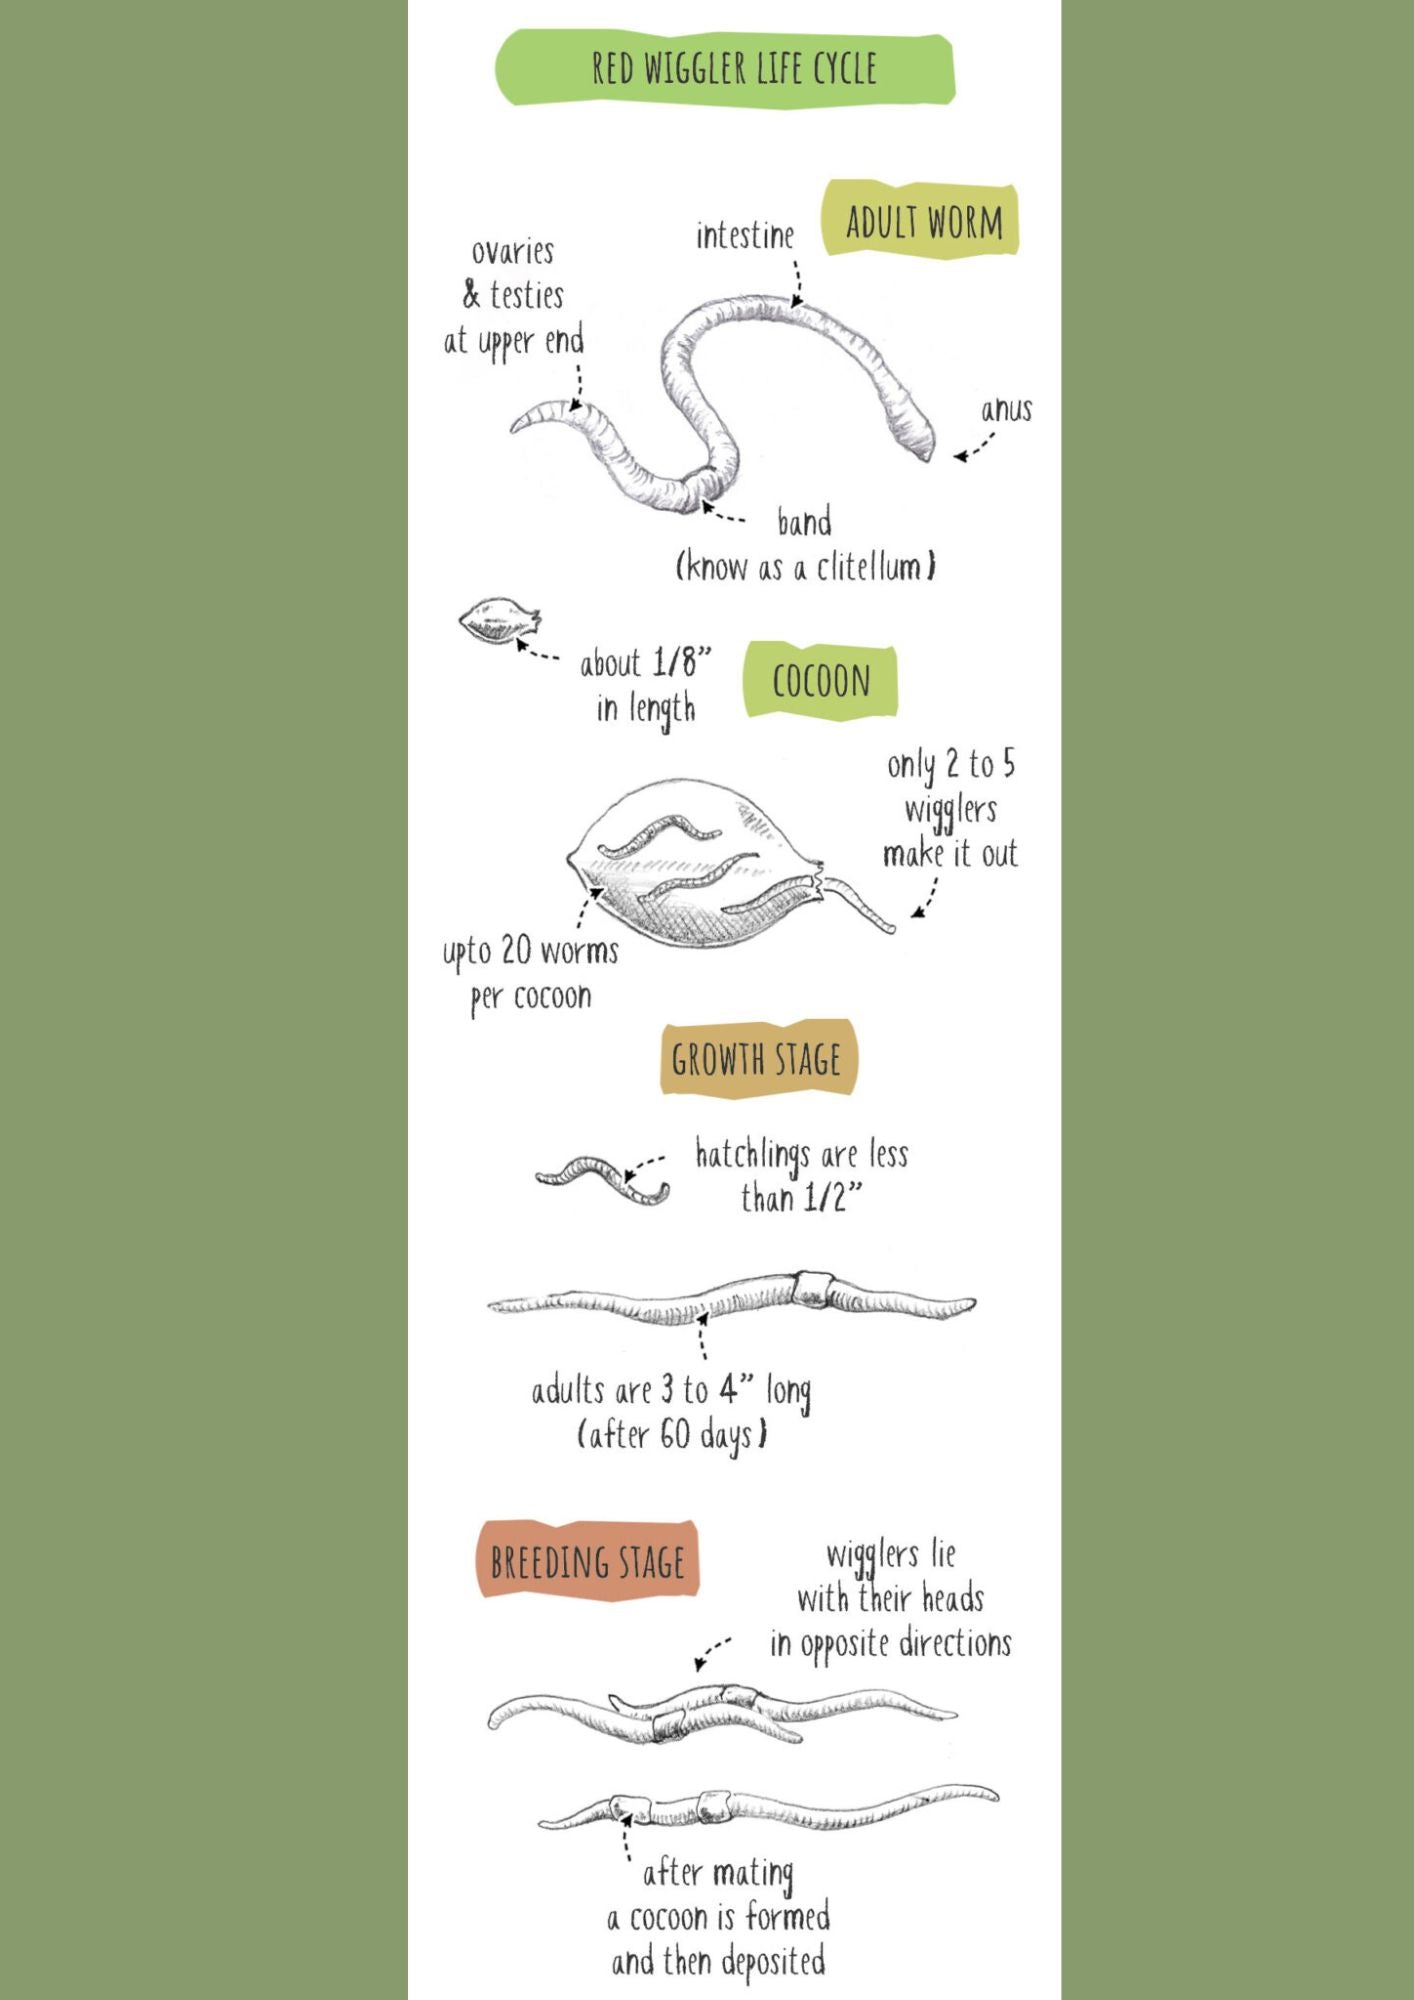 RED WIGGLER LIFE CYCLE
ADULT WORM
ovaries
& testies
at upper end
intestine
anus
band
(know as a clitellum)
about 1/8”
in length
COCOON
only 2 to 5
wigglers
make it out
upto 20 worms
per cocoon
GROWTH STAGE
hatchlings are less
than 1/2”
adults are 3 to 4” long
(after 60 days)
BREEDING STAGE
wigglers lie
with their heads
in opposite directions
after mating
a cocoon is formed
and then deposited